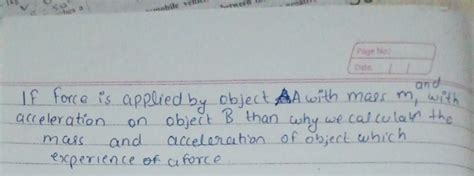 mobile vehicle
Page No:
Date: / /
and
If force is applied by object A A with mass m, with
acceleration on object B than why we calculate the
mass and acceleration of object which
experience of a force